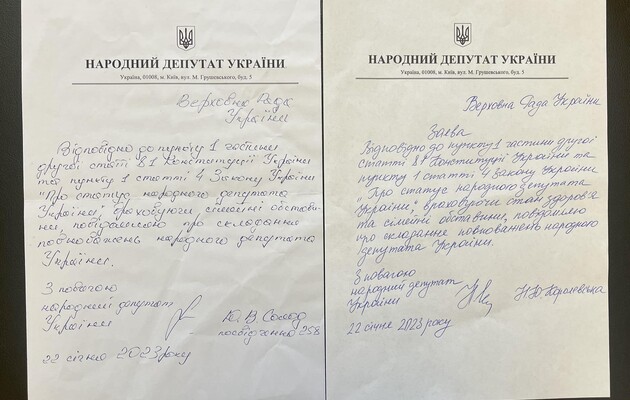 НАРОДНИЙ ДЕПУТАТ УКРАЇНИ
Україна, 01008, м. Київ, вул. М. Грушевського, буд. 5
Верховна Рада
України
Відповідно до пункту 1 частини
другої статті 81 Конституції України
та пункту 1 статті 4 Закону України
"Про статус народного депутата
України", враховуючи сімейні обстави-
ни, повідомляю про складання
повноважень народного депутата
України.
З повагою
народний депутат
України
Ю. В. Солод
посвідчення 258
22 січня 2023 року
НАРОДНИЙ ДЕПУТАТ УКРАЇНИ
Україна, 01008, м. Київ, вул. М. Грушевського, буд. 5
Верховна Рада України
Заява
Відповідно до пункту 1 частини другої
статті 81 Конституції України та
пункту 1 статті 4 Закону України
"Про статус народного депутата
України", враховуючи стан здоров'я
та сімейні обставини, повідомляю
про складання повноважень народного
депутата України.
З повагою
народний депутат
України
Н. Ю. Королевська
22 січня 2023 року